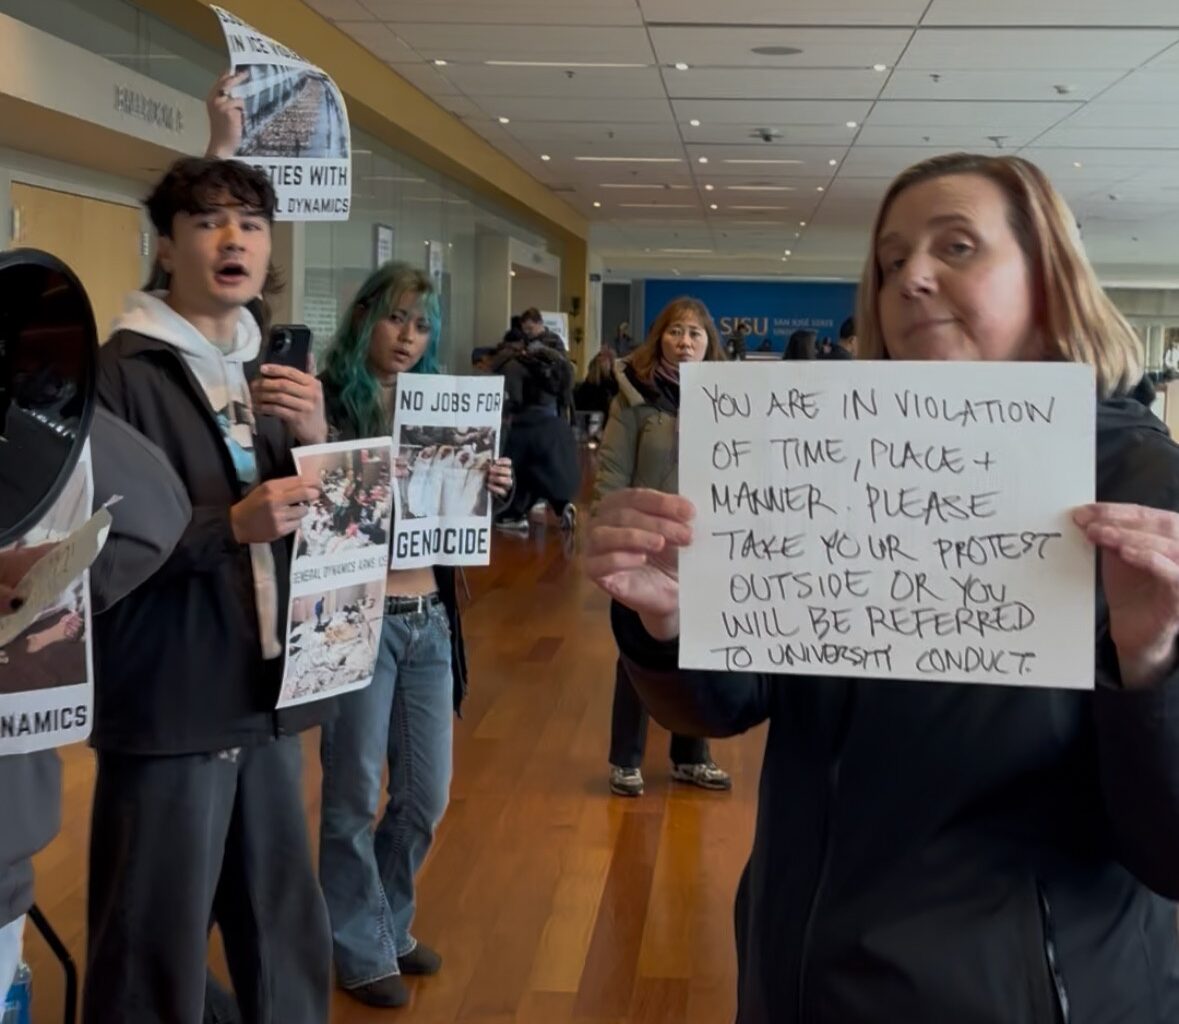 IN ICE
TIES WITH
DYNAMICS
BALLROOM B
NO JOBS FOR
GENOCIDE
GENERAL DYNAMICS ARMS ICE
NAMICS
SJSU SAN JOSÉ STATE
YOU ARE IN VIOLATION
OF TIME, PLACE +
MANNER. PLEASE
TAKE YOUR PROTEST
OUTSIDE OR YOU
WILL BE REFERRED
TO UNIVERSITY CONDUCT.